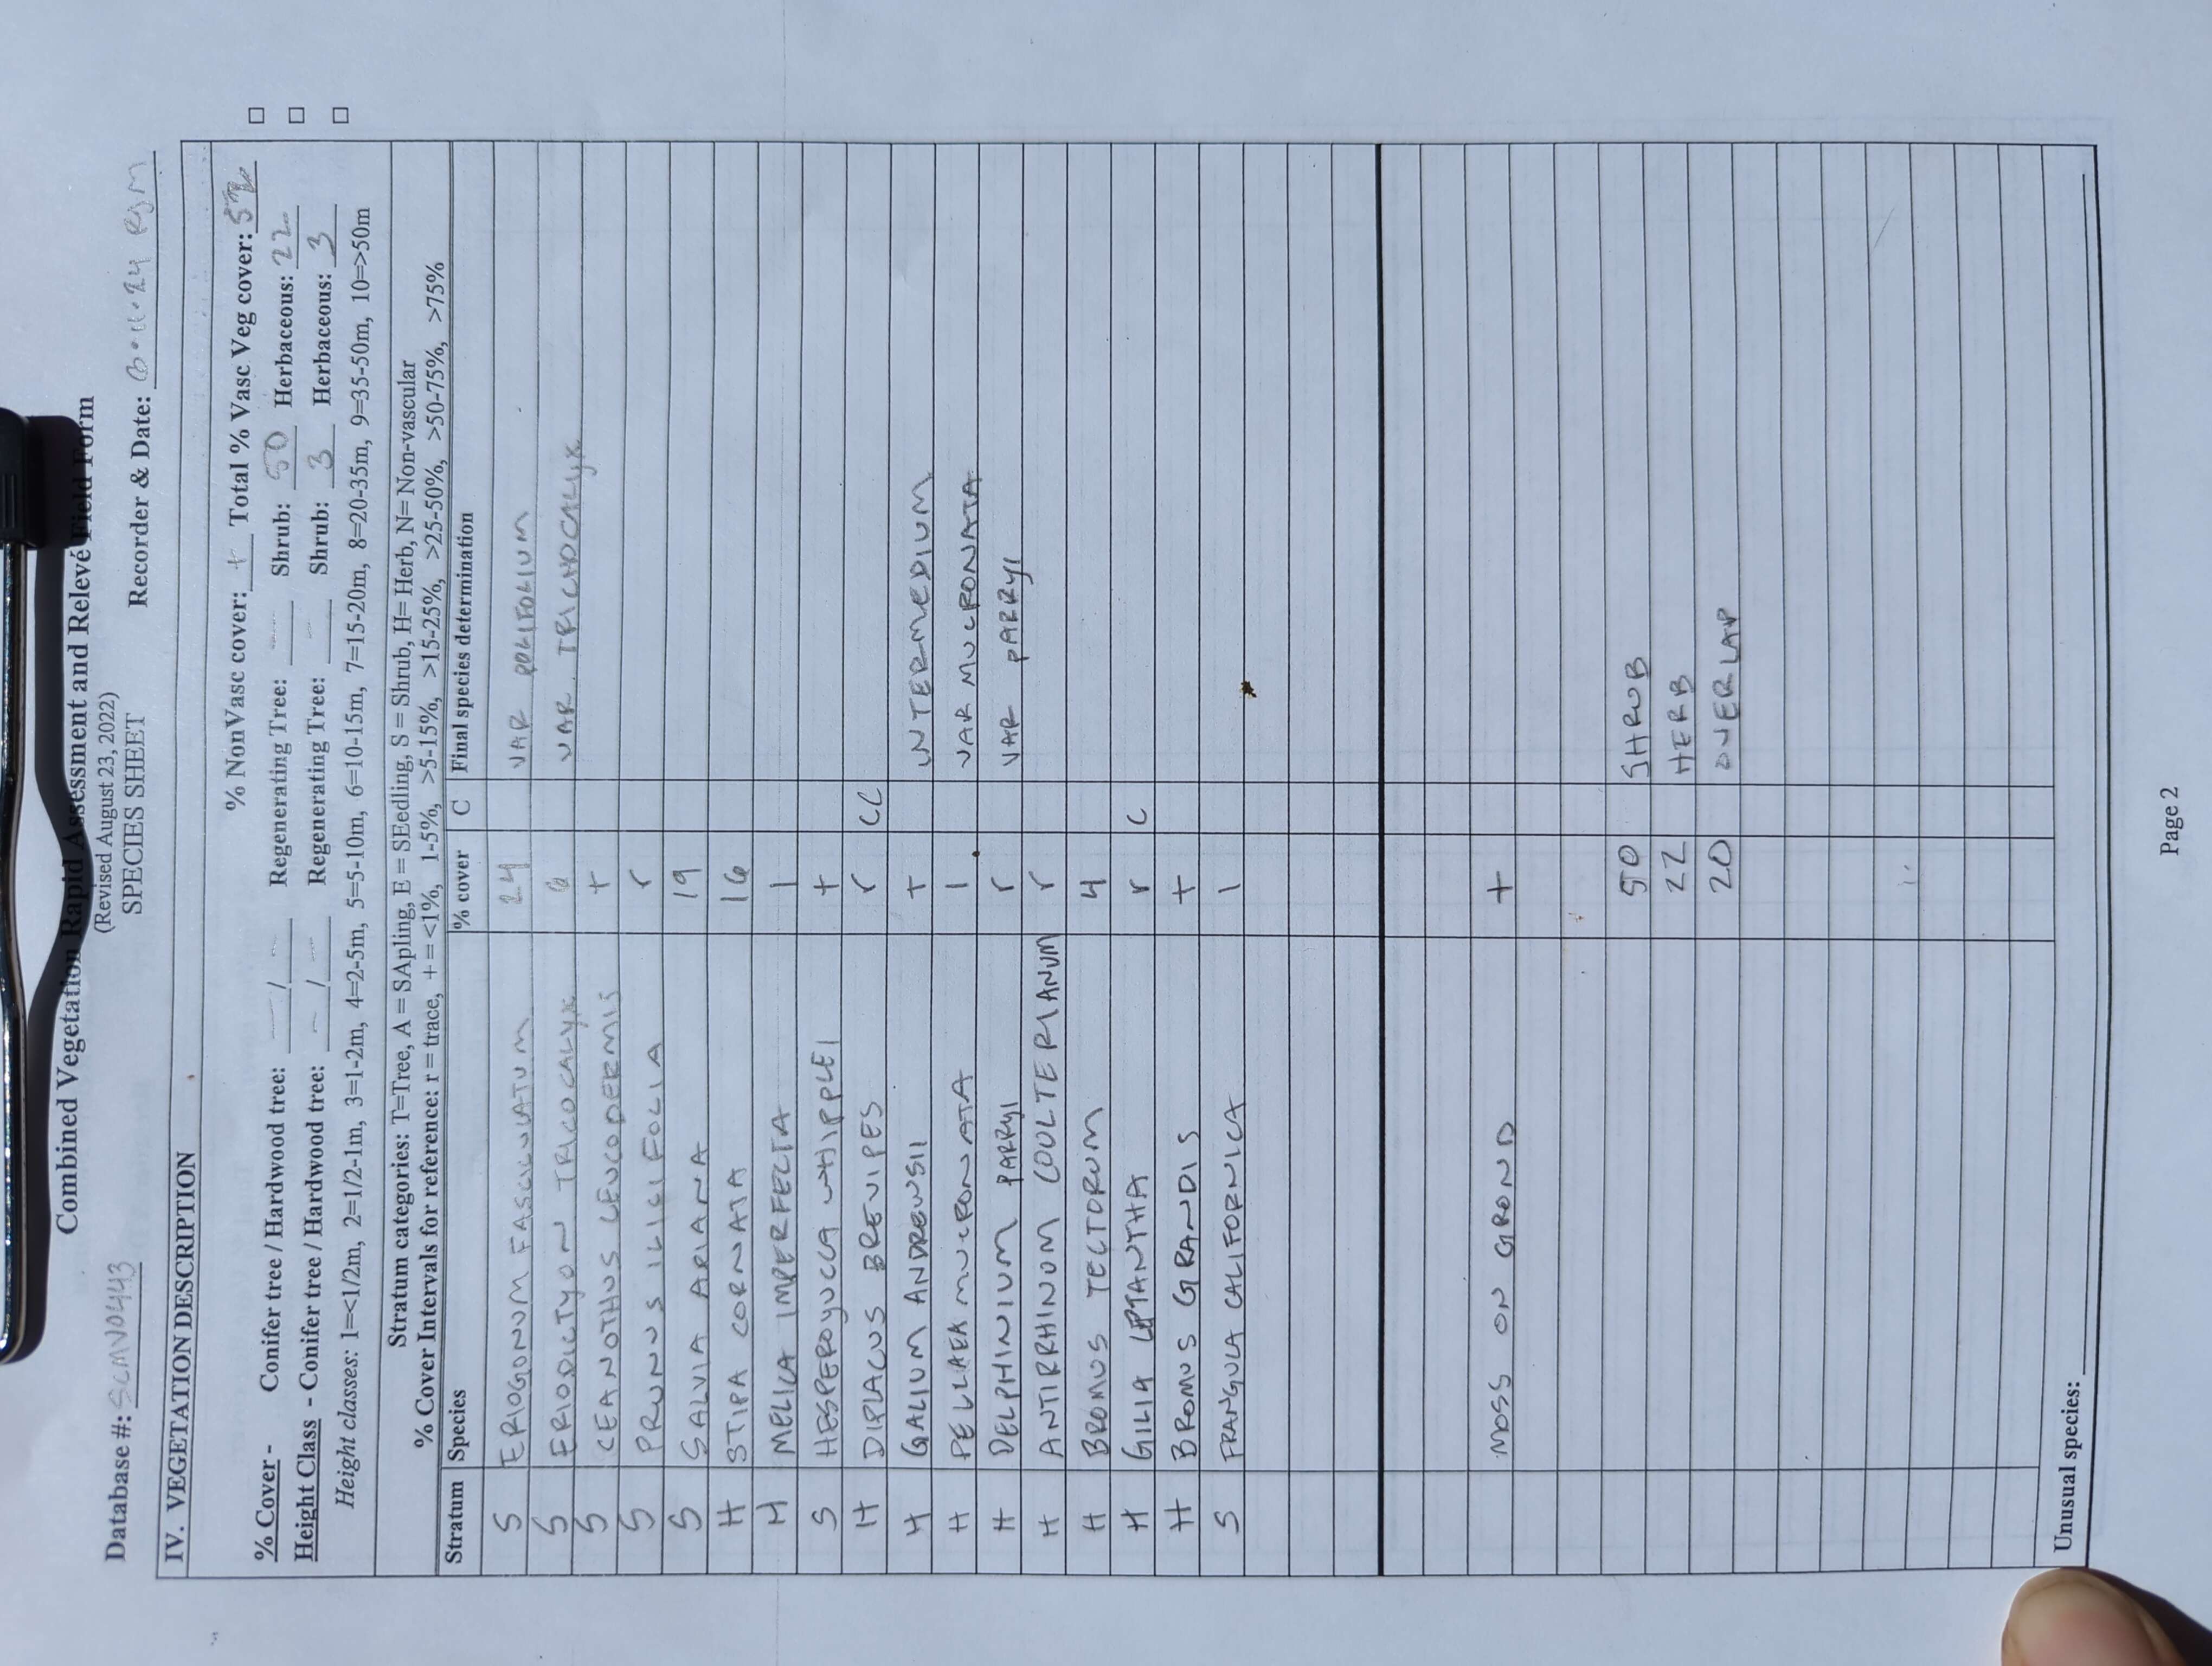 Combined Vegetation Rapid Assessment and Relevé Field Form
(Revised August 23, 2022)
SPECIES SHEET
Database #: SCMV0443 Recorder & Date: 6·11·24 RJM
IV. VEGETATION DESCRIPTION
% NonVasc cover: + Total % Vasc Veg cover:
% Cover - Conifer tree / Hardwood tree: — / — Regenerating Tree: — Shrub: 50 Herbaceous: 22
Height Class - Conifer tree / Hardwood tree: — / — Regenerating Tree: — Shrub: 3 Herbaceous: 3
Height classes: 1=<1/2m, 2=1/2-1m, 3=1-2m, 4=2-5m, 5=5-10m, 6=10-15m, 7=15-20m, 8=20-35m, 9=35-50m, 10=>50m
Stratum categories: T=Tree, A = SApling, E = SEedling, S = Shrub, H= Herb, N= Non-vascular
% Cover Intervals for reference: r = trace, + = <1%, 1-5%, >5-15%, >15-25%, >25-50%, >50-75%, >75%
Stratum Species % cover C Final species determination
S ERIOGONUM FASCICULATUM 24 VAR POLIFOLIUM
S ERIODICTYON TRICOCALYX 6 VAR TRICHOCALYX
S CEANOTHUS LEUCODERMIS +
S PRUNUS ILICIFOLIA r
S SALVIA APIANA 19
H STIPA CORNATA 16
H MELICA IMPERFECTA 1
S HESPEROYUCCA WHIPPLEI +
H DIPLACUS BREVIPES r CC
H GALIUM ANDREWSII + INTERMEDIUM
H PELLAEA MUCRONATA 1 VAR MUCRONATA
H DELPHINIUM PARRYI r VAR PARRYI
H ANTIRRHINUM COULTERIANUM r
H BROMUS TECTORUM 4
H GILIA LEPTANTHA r C
H BROMUS GRANDIS +
S FRANGULA CALIFORNICA 1
MOSS ON GROND +
50 SHRUB
22 HERB
20 OVERLAP
Unusual species:
Page 2